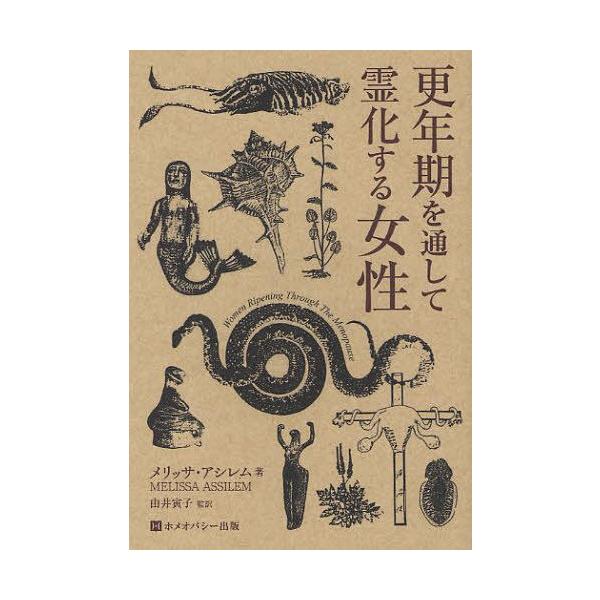 更年期を通して
霊化する女性
Women Ripening Through The Menopause
メリッサ・アシレム 著
MELISSA ASSILEM
由井寅子 監訳
H ホメオパシー出版